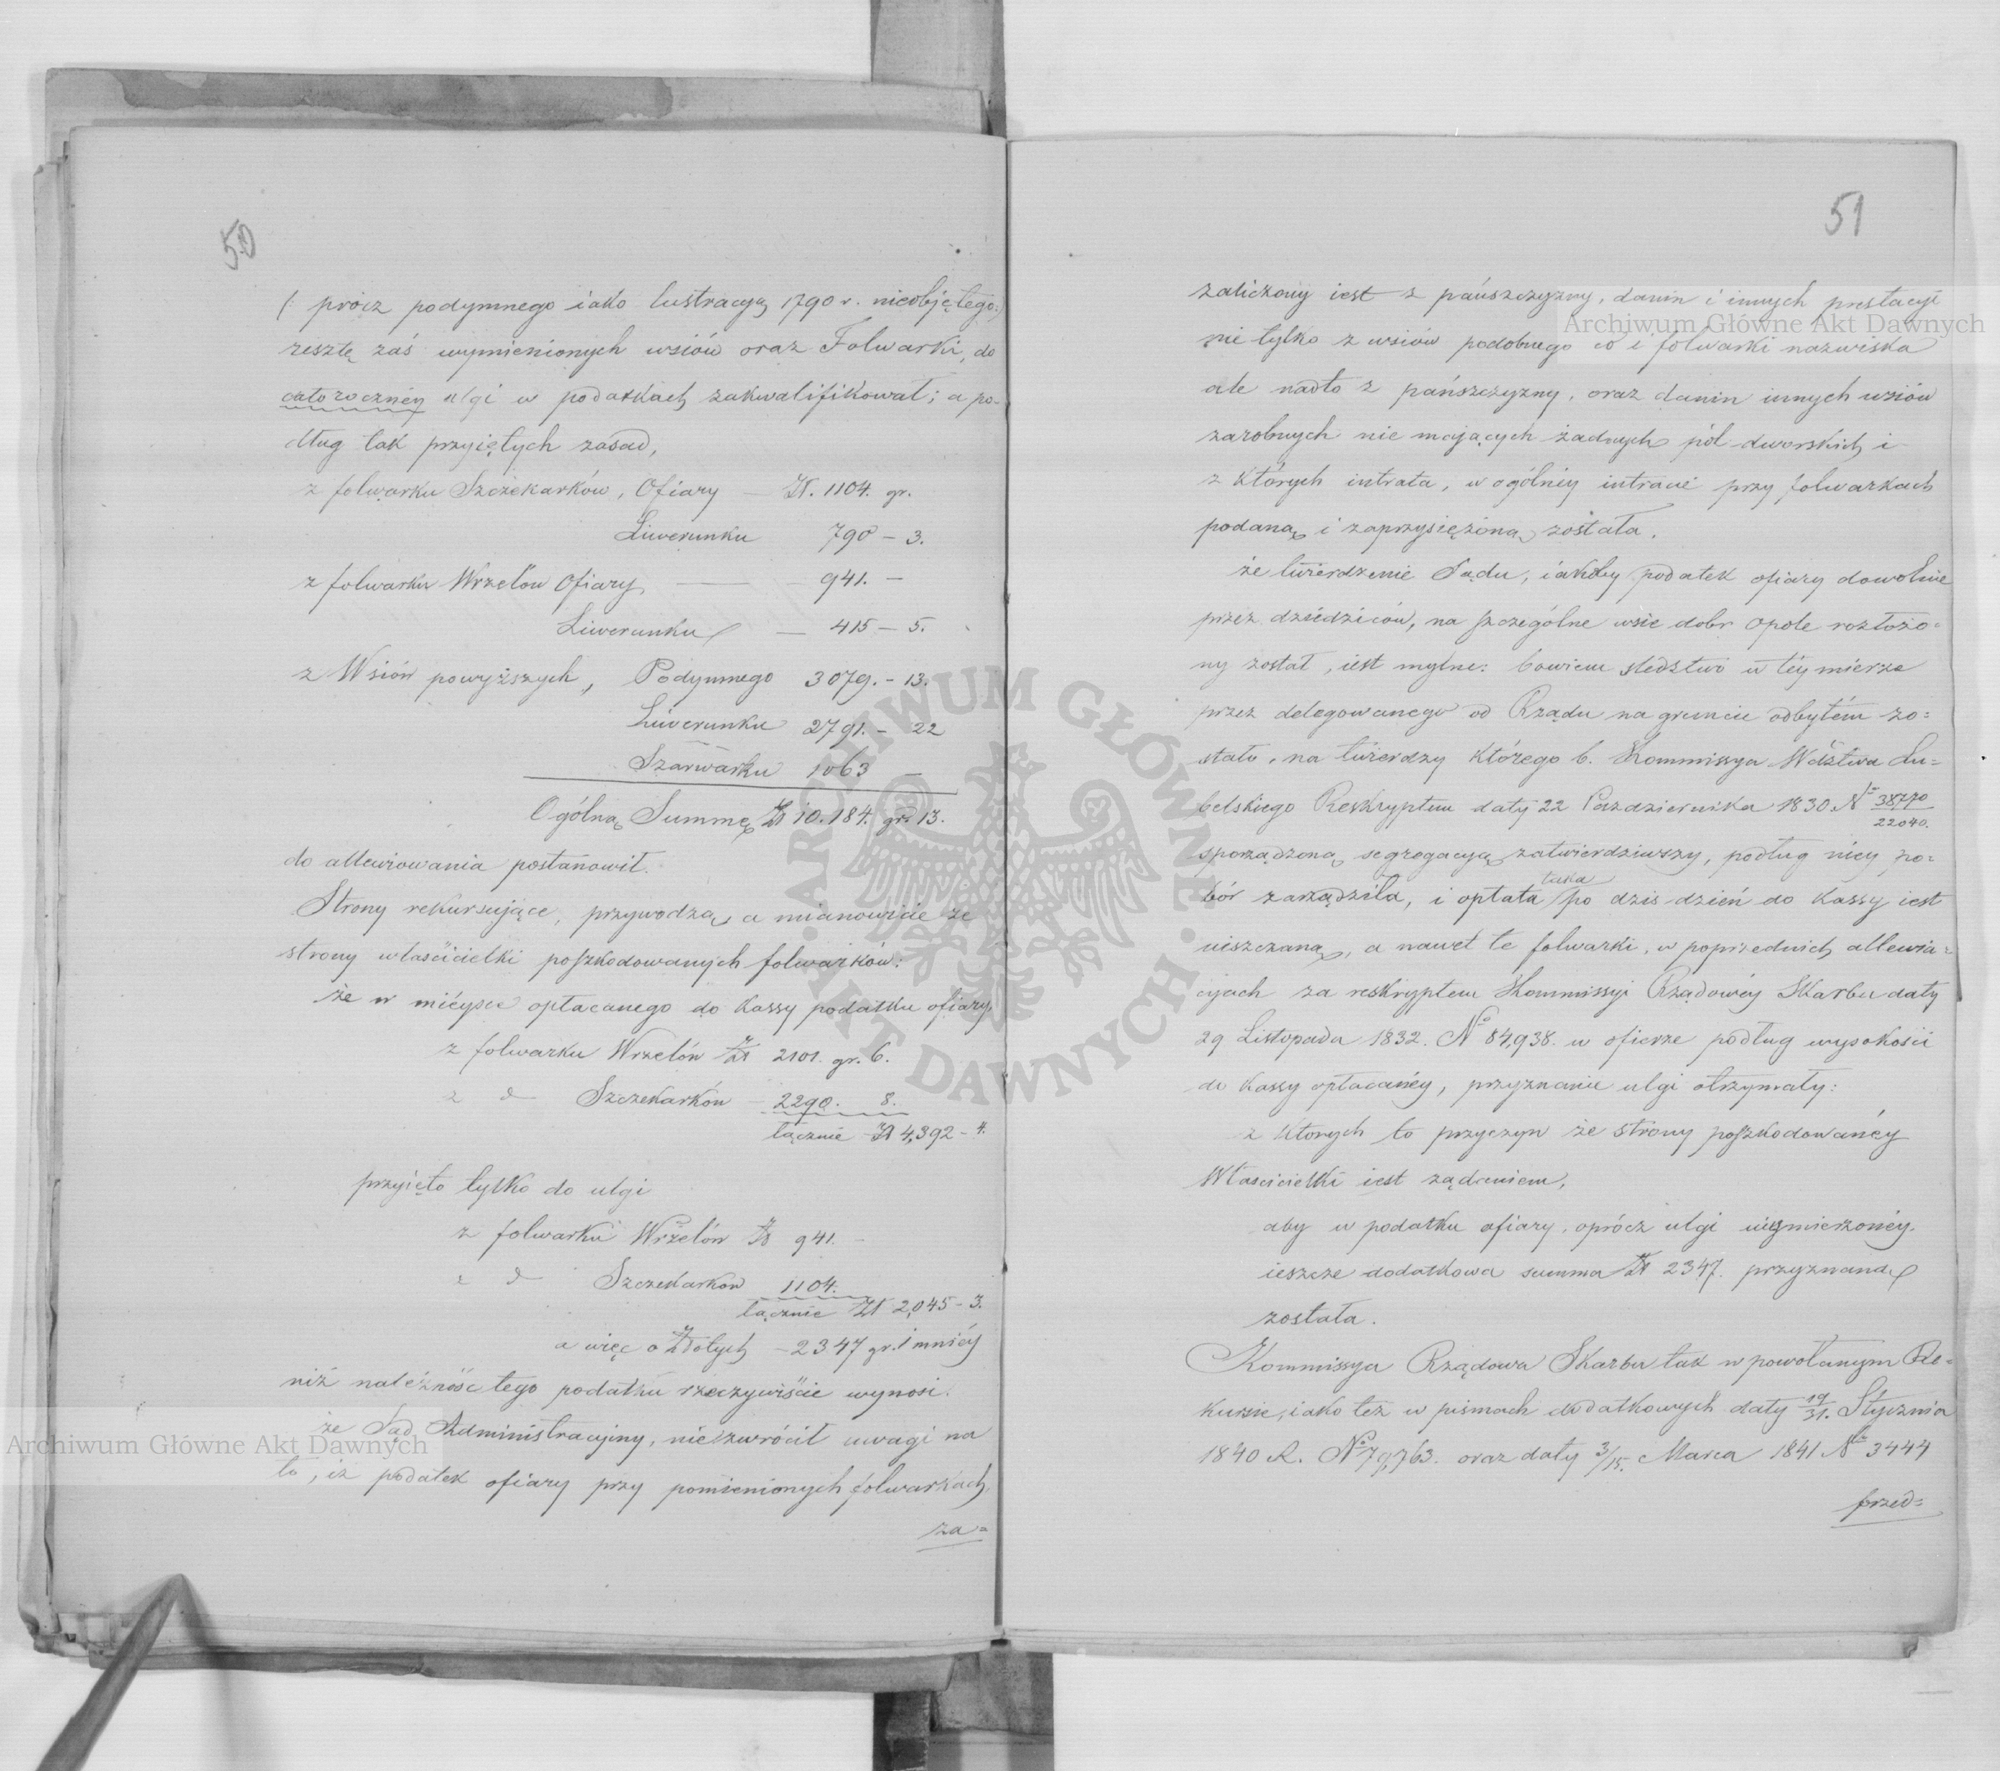 50
(: prócz podymnego iako lustracyą 1790 r. nieobjętego:)
resztę zaś wymienionych wsiów oraz Folwarki, do
całorocznéy ulgi w podatkach zakwalifikował; a po-
dług tak przyiętych zasad,
z folwarku Szczekarków, Ofiary — Zł. 1104. gr.
Liwerunku 790 – 3.
z folwarku Wrzelów Ofiary — 941. –
Liwerunku — 415 – 5.
z Wsiów powyższych, Podymnego 3079. – 13.
Liwerunku 2791. – 22
Szarwarku 1063 –
Ogólną Summę Zł 10.184. gr. 13.
do allewiowania postanowił.
Strony rekursujące, przywodzą, a mianowicie ze
strony właścicielki poszkodowanych folwarków:
że w mieysce opłacanego do Kassy podatku ofiary,
z folwarku Wrzelów Zł 2101. gr. 6.
z d Szczekarków – 2290. 8.
łącznie Zł 4,392 – 4.
przyięto tylko do ulgi
z folwarku Wrzelów Zł 941. –
z d Szczekarków 1104.
łącznie Zł 2,045 – 3.
a więc o Złotych – 2347 gr. 1 mniéy
niż należność tego podatku rzeczywiście wynosi.
że Sąd Administracyiny, niezwrócił uwagi na
to, iż podatek ofiary przy pomienionych folwarkach,
za=
51
zaliczony iest z pańszczyzny, danin i innych prestacyi
nie tylko z wsiów podobnego co i folwarki nazwiska
ale nadto z pańszczyzny, oraz danin innych wsiów
zarobnych nie mających żadnych pól dworskich i
z których intrata, w ogólnéy intracie przy folwarkach
podaną i zaprzysiężoną została.
że twierdzenie Sądu, iakoby podatek ofiary dowolnie
przez dziedziców, na szczególne wsie dobr Opole rozłożo=
ny został, iest mylne: bowiem sledztwo w téy mierze
przez delegowanego od Rządu na gruncie odbytém zo=
stało, na twierdzy którego b. Kommissya Wdztwa Lu=
belskiego Reskryptem daty 22 Pazdziernika 1830 No 38770/22040.
sporządzoną segregacyą zatwierdziwszy, podług niey po=
bór zarządziła, i opłata taka po dzis dzień do Kassy iest
uiszczaną, a nawet te folwarki, w poprzednich allewia=
cyach za reskryptem Kommissyi Rządowéy Skarbu daty
29 Listopada 1832. No 84,938. w ofierze podług wysokości
do Kassy opłacanéy, przyznanie ulgi otrzymały:
z ktorych to przyczyn ze strony poszkodowanéy
Właścicielki iest żądaniem,
aby w podatku ofiary, oprócz ulgi wymierzonéy,
ieszcze dodatkowa summa Zł 2347. przyznaną
została.
Kommissya Rządowa Skarbu tak w powołanym Re=
kursie, iako też w pismach dodatkowych daty 19/31. Stycznia
1840 R. No 79,763. oraz daty 3/15. Marca 1841 No 3444
przed=
Archiwum Główne Akt Dawnych
Archiwum Główne Akt Dawnych
ARCHIWUM GŁÓWNE · AKT DAWNYCH ·